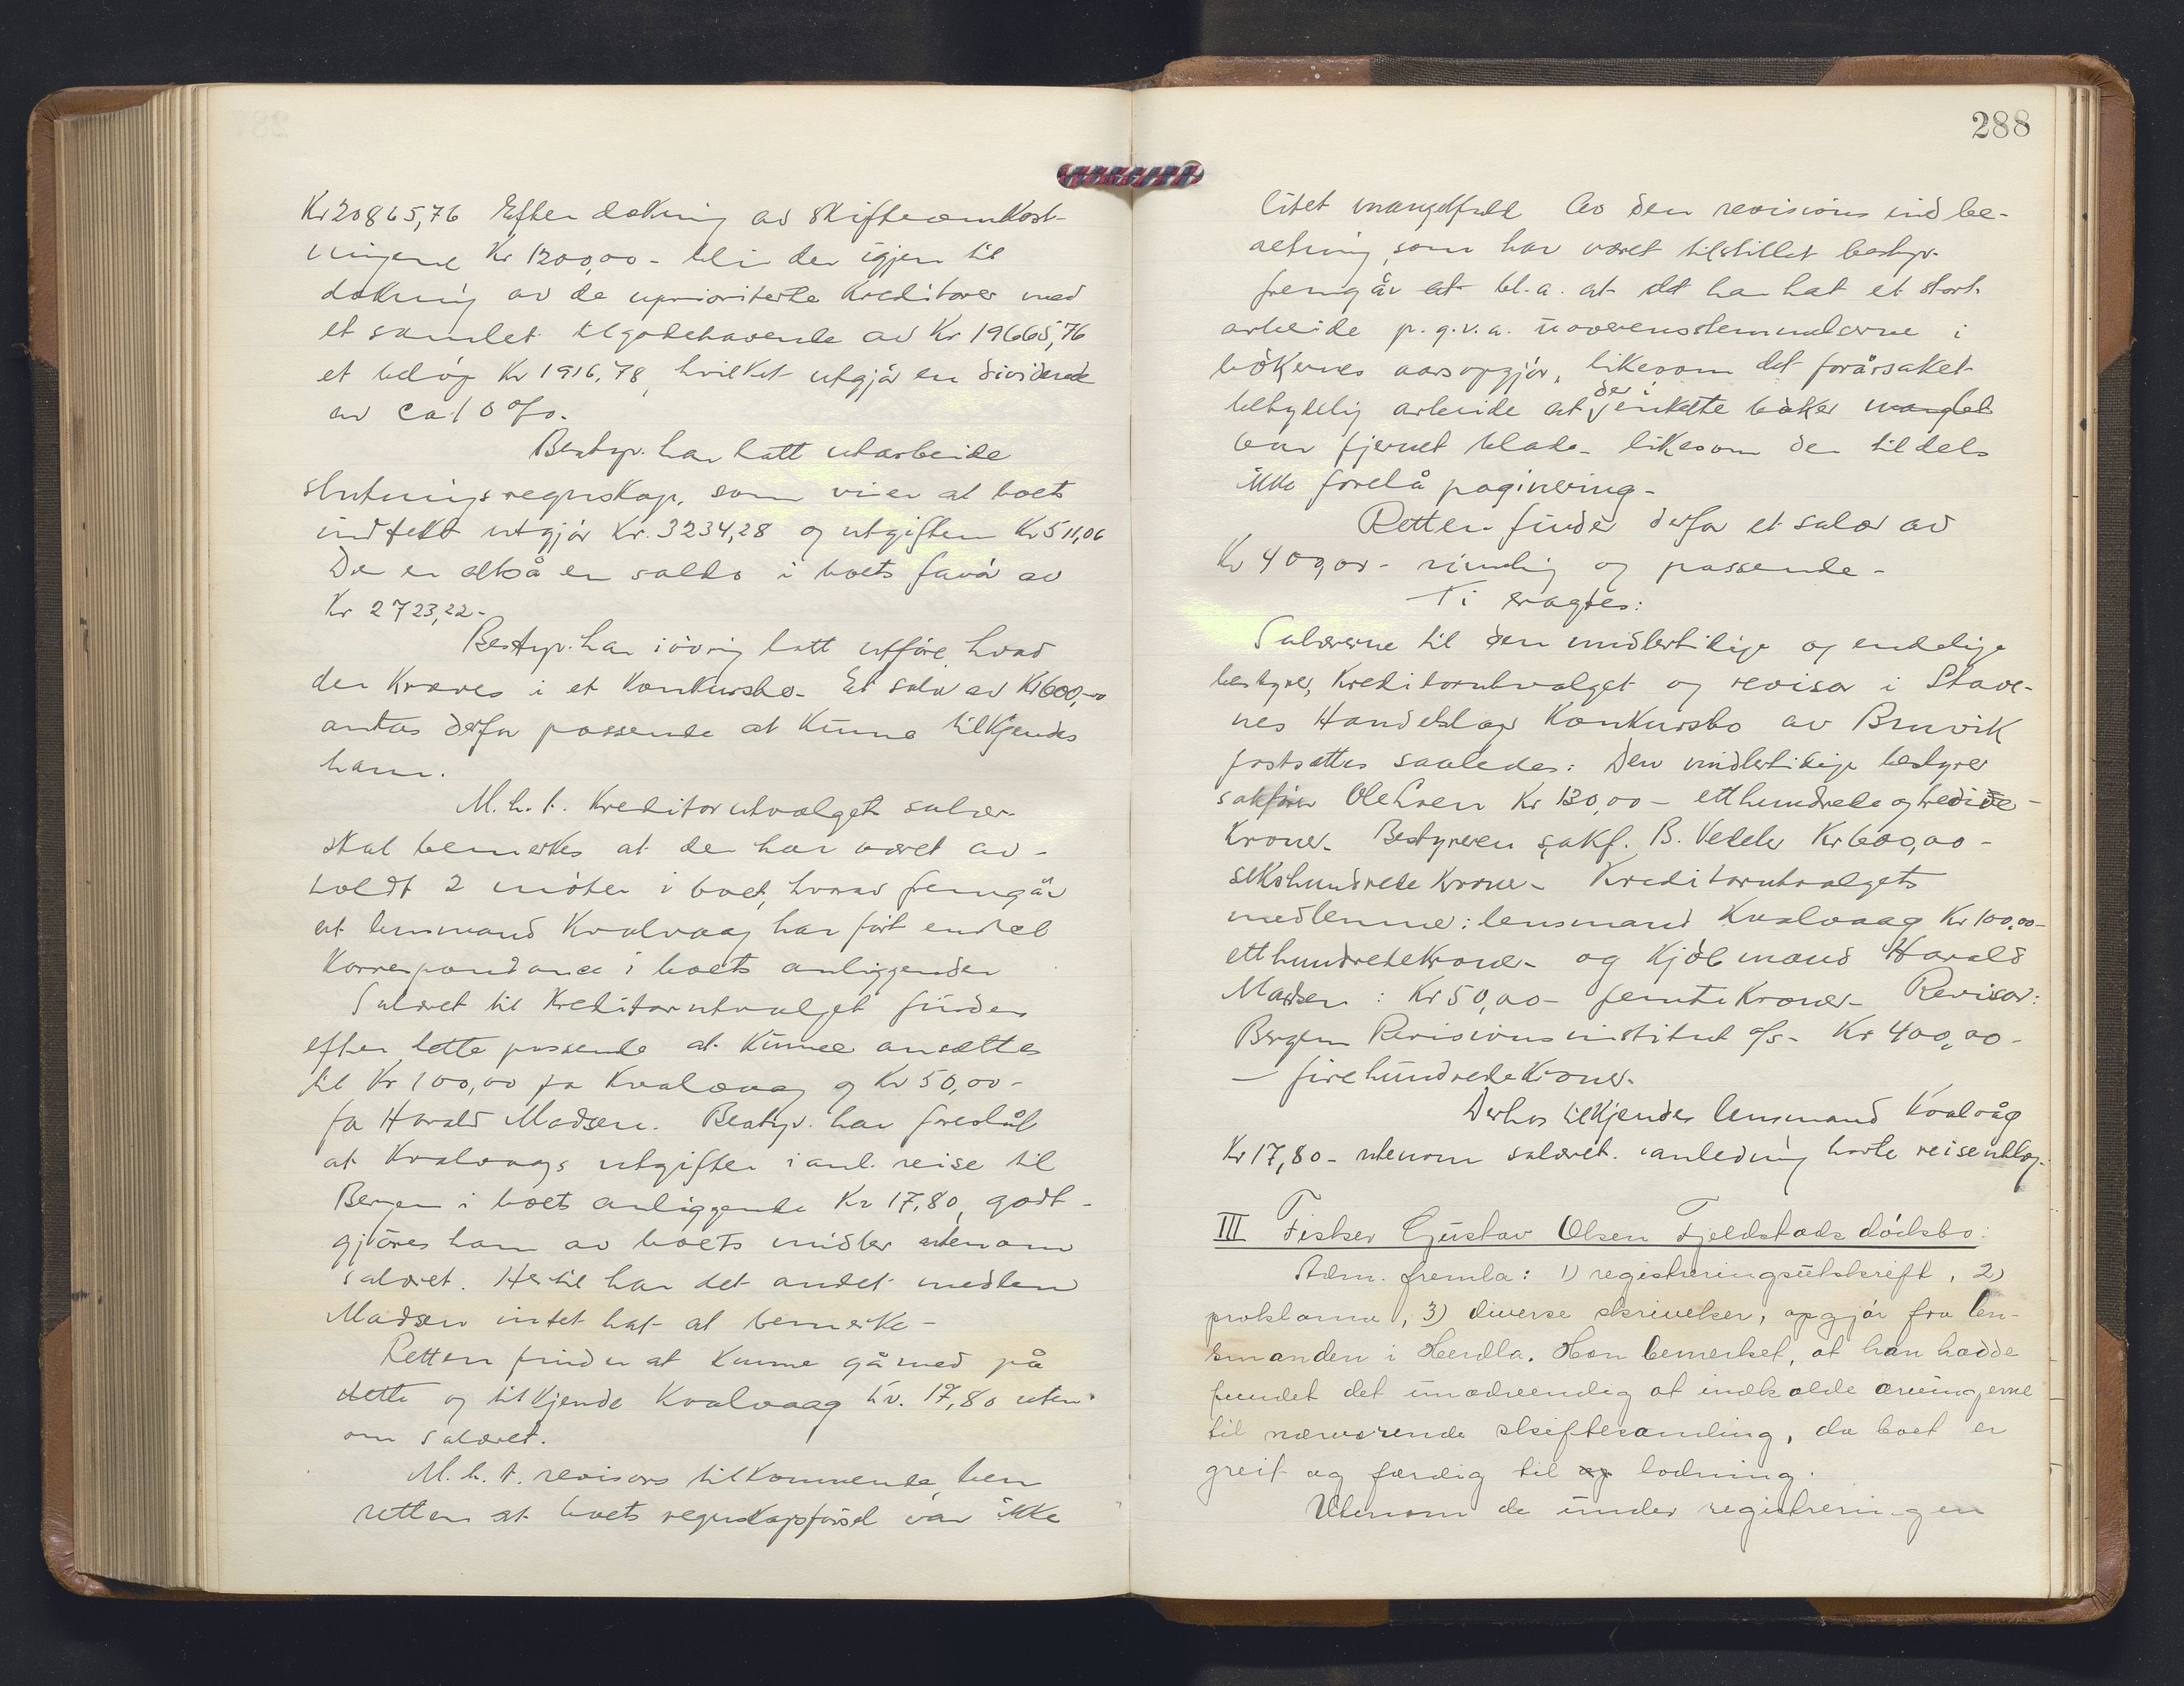 Kr 20865,76 Efter dækning av skifteomkost-
ningene Kr 1200,00 - blir der igjen til
dækning av de uprioriterte kreditorer med
et samlet tilgodehavende av Kr 19665,76
et beløp Kr 1916,78, hvilket utgjør en dividende
av ca 10 %.
Bestyr. har latt utarbeide
slutningsregnskap, som viser at boets
indtekt utgjør Kr. 3234,28 og utgiften Kr 511,06
Der er altså en saldo i boets favør av
Kr 2723,22-
Bestyr. har i øvrig latt utføre hvad
der kræves i et konkursbo. Et salær av Kr 600,-
antas derfor passende at kunne tilkjendes
ham.
M.h.t. kreditorutvalget salær
skal bemerkes at der har været av-
holdt 2 møter i boet, hvorav fremgår
at lensmand Kvalvaag har ført endel
korrespondance i boets anliggender
Salæret til kreditorutvalget findes
efter dette passende at kunne ansættes
til Kr 100,00 for Kvalvaag og Kr 50,00-
for Harald Madsen. Bestyr. har foreslåt
at Kvalvaags utgifter i anl. reise til
Bergen i boets anliggende Kr 17,80, godt-
gjøres ham av boets midler utenom
salæret. Hertil har det andet medlem
Madsen intet hat at bemerke -
Retten finder at kunne gå med på
dette og tilkjende Kvalvaag kr. 17,80 uten-
om salæret.
M.h.t. revisors tilkommende, ben
retten at boets regnskapsførsel var ikke
288
litet mangelfuld Av den revisions indbe-
retning, som har været tilstillet bestyr.
fremgår at bl.a. at det har hat et stort
arbeide p.g.v.a. uoverensstemmelserne i
bøkernes aarsopgjør, likesom det forårsaket
betydelig arbeide at der i enkelte bøker manglet
var fjernet blade - likesom der tildels
ikke forelå paginering -
Retten finder derfor et salær av
Kr 400,00 - rimelig og passende -
Ti eragtes:
Salærerne til den midlertidige og endelige
bestyrer, kreditorutvalget og revisor i Stave-
nes Handelslags konkursbo av Bruvik
fastsættes saaledes: Den midlertidige bestyrer
sakfører Ole Loen Kr 130,00 - etthundrede og tredive -
kroner - Bestyreren sakf. B. Vedeler Kr 600,00 -
sekshundrede kroner - Kreditorutvalgets
medlemme: lensmand Kvalvaag Kr 100,00 -
etthundrede kroner - og Kjøbmand Harald
Madsen : Kr 50,00 - femti kroner - Revisor:
Bergen Revisionsinstitut A/S - Kr 400,00 -
- firehundrede kroner.
Derhos tilkjendes lensmand Kvalvåg
Kr 17,80 - utenom salæret i anledning havte reiseutlæg.
III Fisker Gustav Olsen Fjeldstads dødsbo:
Adm. fremla: 1) registreringsutskrift, 2)
proklama, 3) diverse skrivelser, opgjør fra len-
smanden i Herdla. Han bemerket, at han hadde
fundet det unødvendig at indkalde arvingerne
til nærværende skiftesamling, da boet er
greit og færdig til op lodning.
Utenom de under registreringen